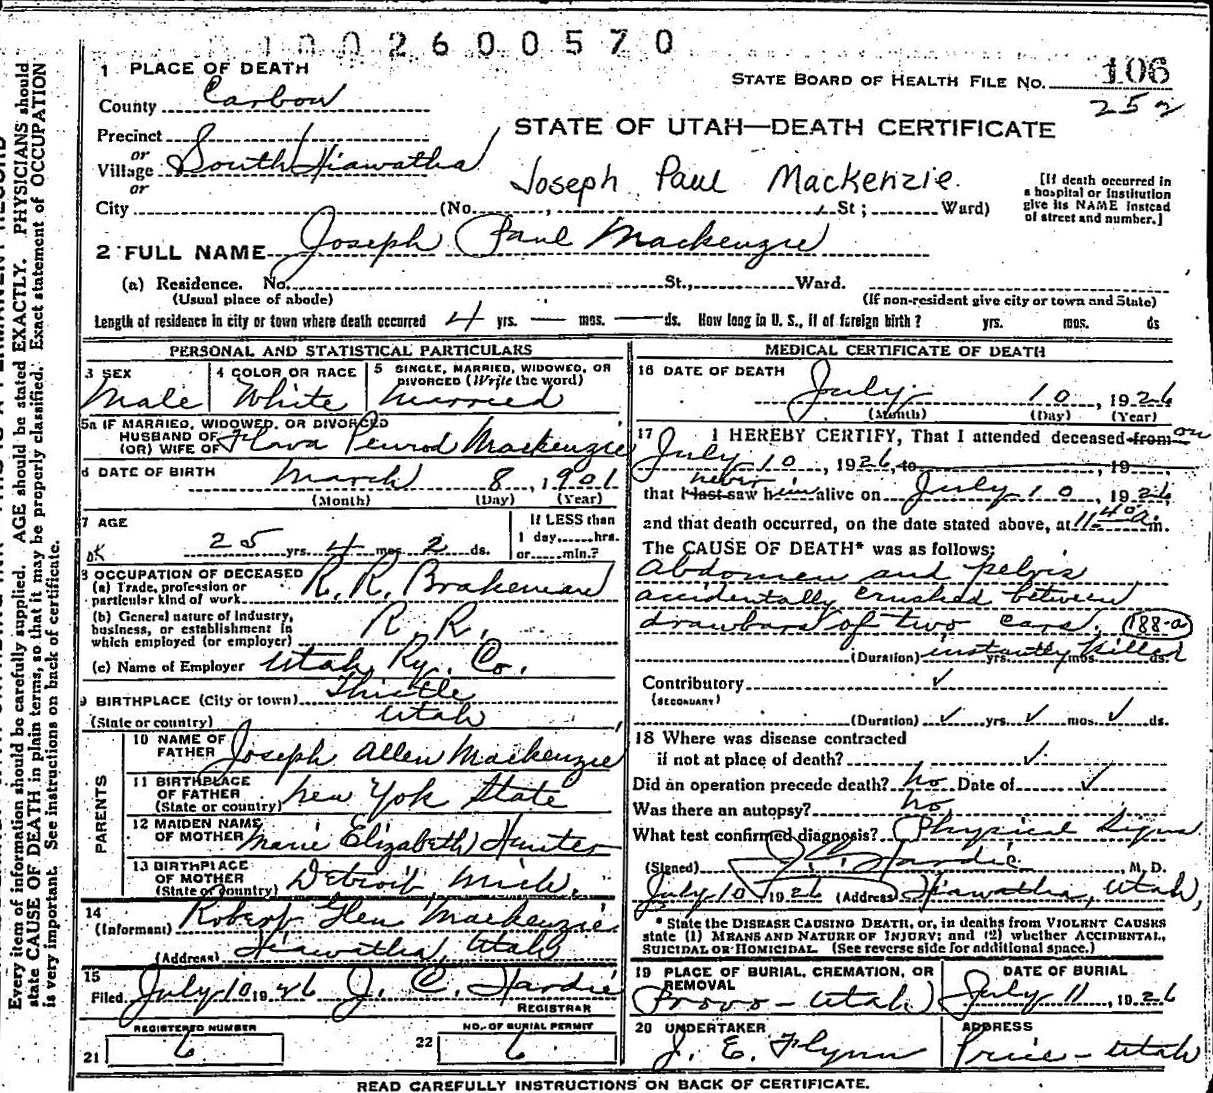 1 0 0 2 6 0 0 5 7 0
1 PLACE OF DEATH
STATE BOARD OF HEALTH FILE NO. 106
County Carbon
252
STATE OF UTAH—DEATH CERTIFICATE
Precinct
or
Village South Hiawatha
or
Joseph Paul Mackenzie.
[If death occurred in
a hospital or institution
give its NAME instead
of street and number.]
City (No. , St ; Ward)
2 FULL NAME Joseph Paul Mackenzie
(a) Residence. No. St., Ward.
(Usual place of abode)
(If non-resident give city or town and State)
Length of residence in city or town where death occurred 4 yrs. — mos. — ds. How long in U. S., if of foreign birth ? yrs. mos. ds
PERSONAL AND STATISTICAL PARTICULARS
3 SEX
Male
4 COLOR OR RACE
White
5 SINGLE, MARRIED, WIDOWED, OR
DIVORCED (Write the word)
Married
5a IF MARRIED, WIDOWED, OR DIVORCED
HUSBAND OF
(OR) WIFE OF Flava Penrod Mackenzie
6 DATE OF BIRTH March 8, 1901
(Month) (Day) (Year)
7 AGE
OK 25 yrs. 4 mos. 2 ds.
If LESS than
1 day, hrs.
or min.?
8 OCCUPATION OF DECEASED
(a) Trade, profession or
particular kind of work R. R. Brakeman
(b) General nature of industry,
business, or establishment in
which employed (or employer) R. R.
(c) Name of Employer Utah Ry. Co.
9 BIRTHPLACE (City or town) Thistle
(State or country) Utah
PARENTS
10 NAME OF
FATHER Joseph Allen Mackenzie
11 BIRTHPLACE
OF FATHER
(State or country) New York State
12 MAIDEN NAME
OF MOTHER Marie Elizabeth Hunter
13 BIRTHPLACE
OF MOTHER
(State or country) Detroit, Mich.
14
(Informant) Robert Glen Mackenzie
(Address) Hiawatha, Utah
15
Filed July 10 1926 J. C. Hardie
REGISTRAR
REGISTERED NUMBER
21 6
NO. OF BURIAL PERMIT
22 6
MEDICAL CERTIFICATE OF DEATH
16 DATE OF DEATH
July 10, 1926
(Month) (Day) (Year)
17 I HEREBY CERTIFY, That I attended deceased from on
July 10, 1926, to , 19
never
that I last saw him alive on July 10, 1926
and that death occurred, on the date stated above, at 11-40 a. m.
The CAUSE OF DEATH* was as follows:
Abdomen and pelvis
accidentally crushed between
drawbars of two cars. 188-a
(Duration) instantly killed yrs. mos. ds.
Contributory ✓
(SECONDARY)
(Duration) ✓ yrs. ✓ mos. ✓ ds.
18 Where was disease contracted
if not at place of death? ✓
Did an operation precede death? no Date of ✓
Was there an autopsy? no
What test confirmed diagnosis? Physical Signs
(Signed) J. C. Hardie M. D.
July 10 1926 (Address) Hiawatha, Utah,
* State the DISEASE CAUSING DEATH, or, in deaths from VIOLENT CAUSES
state (1) MEANS AND NATURE OF INJURY; and (2) whether ACCIDENTAL,
SUICIDAL OR HOMICIDAL (See reverse side for additional space.)
19 PLACE OF BURIAL, CREMATION, OR
REMOVAL
Provo - Utah
DATE OF BURIAL
July 11, 1926
20 UNDERTAKER
J. E. Flynn
ADDRESS
Price - Utah
READ CAREFULLY INSTRUCTIONS ON BACK OF CERTIFICATE.
Every item of information should be carefully supplied. AGE should be stated EXACTLY. PHYSICIANS should
state CAUSE OF DEATH in plain terms, so that it may be properly classified. Exact statement of OCCUPATION
is very important. See instructions on back of certificate.